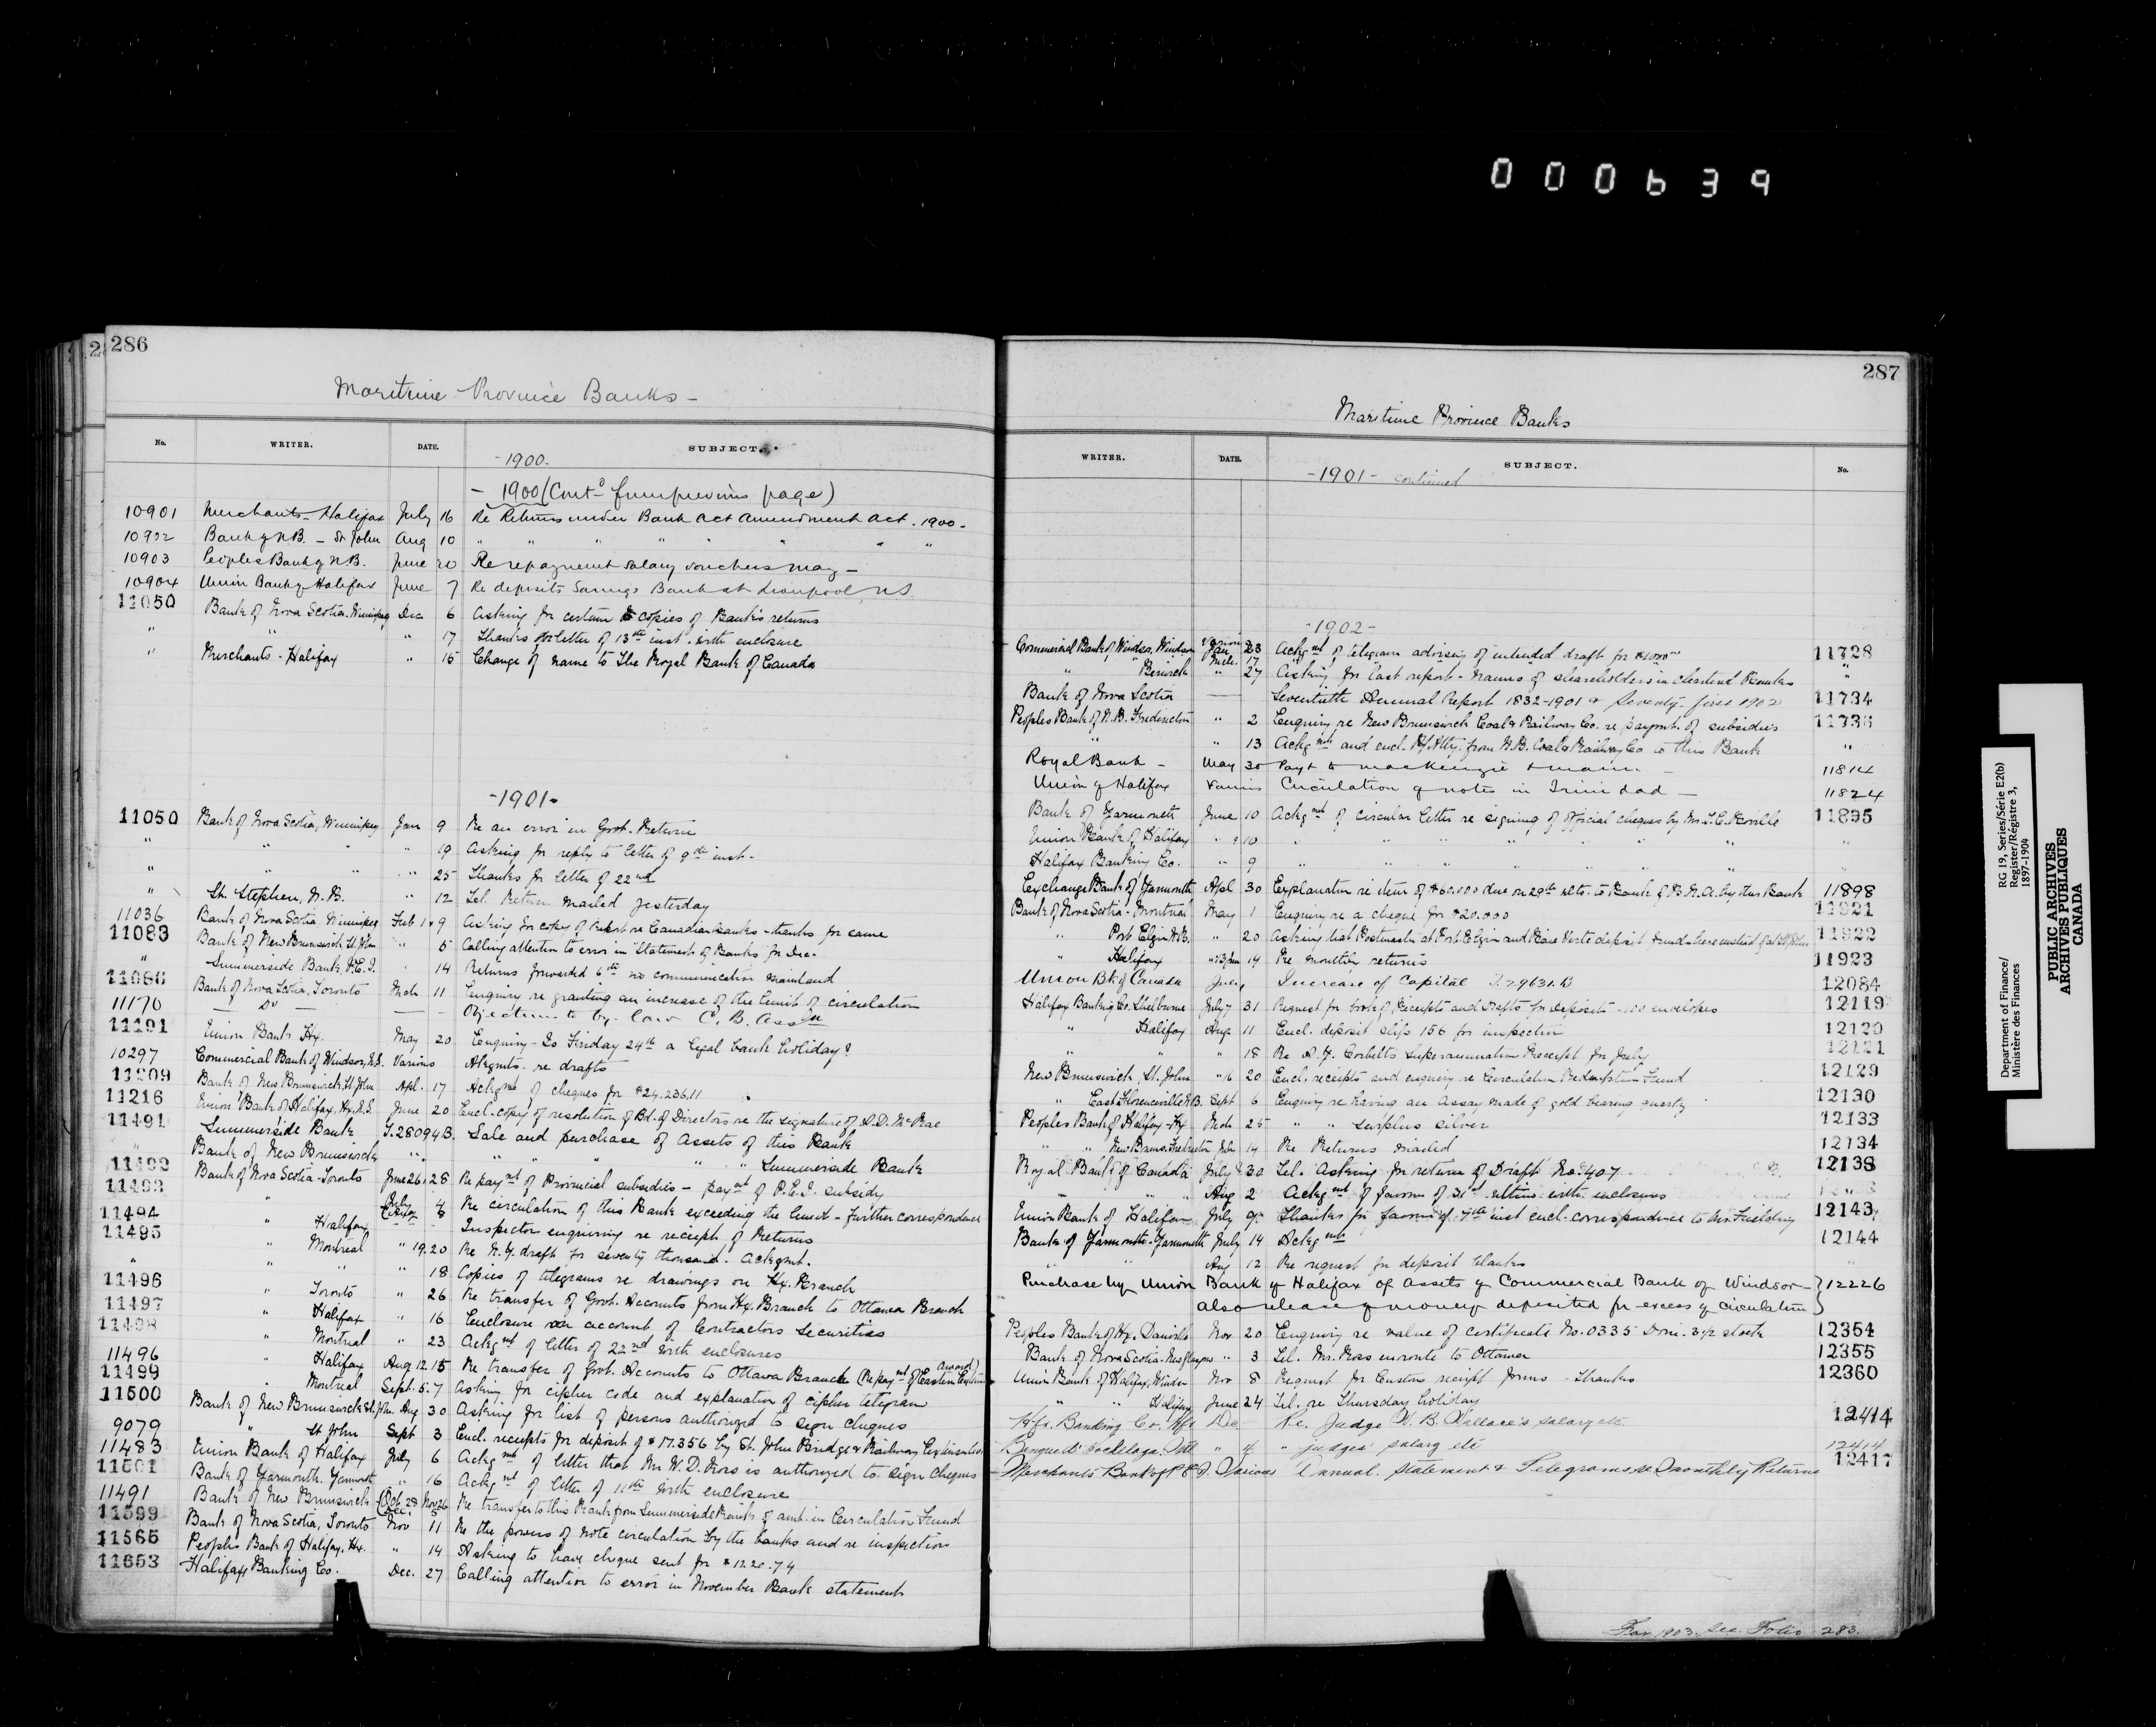 000639
286
Maritime Province Banks -
No. WRITER. DATE. SUBJECT.
-1900.
- 1900 (Contd from previous page)
10901 Merchants - Halifax July 16 Re Returns under Bank Act Amendment Act. 1900.
10902 Bank of N.B. - St John Aug 10 " " " " " " "
10903 Peoples Bank of N.B. June 20 Re repayment salary vouchers May -
10904 Union Bank of Halifax June 7 Re deposits Savings Bank at Liverpool, N.S.
11050 Bank of Nova Scotia, Winnipeg Dec 6 Asking for certain copies of Bank's returns
" " " 17 Thanks for letter of 13th inst. with enclosure
" Merchants - Halifax " 15 Change of name to The Royal Bank of Canada
-1901-
11050 Bank of Nova Scotia, Winnipeg Jan 9 Re an error in Govt. Return
" " " " 19 Asking for reply to letter of 9th inst.
" " " " 25 Thanks for letter of 22nd
" St. Stephen, N.B. " 12 Tel. Return mailed yesterday
11036 Bank of Nova Scotia Winnipeg Feb 1 & 9 Asking for copy of Report re Canadian Banks - thanks for same
11083 Bank of New Brunswick St. John " 5 Calling attention to error in Statement of Banks for Dec.
" Summerside Bank, P.E.I. " 14 Returns forwarded 6th no communication mainland
11086 Bank of Nova Scotia, Toronto Mch 11 Enquiry re granting an increase of the limit of circulation
11170 — Do — — Objection to by-law C. B. Assn
11191 Union Bank Hx. May 20 Enquiry - Is Friday 24th a legal bank holiday?
10297 Commercial Bank of Windsor, N.S. Various Akgmts. re drafts
11209 Bank of New Brunswick, St. John Apl. 17 Ackgmt of cheques for $24,236.11
11216 Union Bank of Halifax, Hx, N.S. June 20 Encl. copy of resolution of Bd. of Directors re the signature of A.D. McRae
11491 Summerside Bank T.28094B. Sale and purchase of assets of this Bank
" Bank of New Brunswick " " " " " " " Summerside Bank
11492 Bank of Nova Scotia - Toronto June 26 & 28 Re paymt of Provincial subsidies - paymt of P.E.I. subsidy
11493 July 4 Re circulation of this Bank exceeding the limit - Further correspondence
11494 " Halifax " 8 Inspector enquiring re receipt of Returns
11495 " Montreal " 19.20 Re N.Y. draft for seventy thousand. Ackgmt.
" " " " 18 Copies of telegrams re drawings on Hx. Branch
11496 " Toronto " 26 Re transfer of Govt. Accounts from Hx. Branch to Ottawa Branch
11497 " Halifax " 16 Enclosure on account of Contractors Securities
11498 " Montreal " 23 Ackgmt of letter of 22nd with enclosures
11496 " Halifax Aug 12.15 Re transfer of Govt. Accounts to Ottawa Branch (Re paymt of Eastern Extension award)
11499 " Montreal Sept. 5.7 Asking for cipher code and explanation of cipher telegram
11500 Bank of New Brunswick St. John Aug 30 Asking for list of persons authorized to sign cheques
9079 " St John Sept 3 Encl. receipts for deposit of $17.356 by St. John Bridge & Railway Extension Co.
11483 Union Bank of Halifax July 6 Ackgmt of letter that Mr W.D. Ross is authorized to sign cheques
11501 Bank of Yarmouth, Yarmouth " 16 Ackgmt of letter of 11th with enclosure
11491 Bank of New Brunswick (Oct. 28 Nov 26 Dec. 5 Re transfer to this Bank from Summerside Bank of amt. in Circulation Fund
11599 Bank of Nova Scotia, Toronto Nov 11 Re the powers of note circulation by the banks and re inspection
11566 Peoples Bank of Halifax, Hx. " 14 Asking to have cheque sent for $1220.74
11653 Halifax Banking Co. Dec. 27 Calling attention to error in November Bank statement
287
Maritime Province Banks
WRITER. DATE. SUBJECT. No.
-1901- continued
-1902-
Commercial Bank of Windsor, Windsor Various Jan 23 Ackgmt of telegram advising of intended draft for 11728
" " Berwick Mch. 17 " 27 Asking for last report - names of shareholders in chartered Banks "
Bank of Nova Scotia — Seventieth Annual Report 1832-1901 & Seventy-first 1902 11734
Peoples Bank of N.B. Fredericton " 2 Enquiry re New Brunswick Coal & Railway Co. re paymt. of subsidies 11736
" " 13 Ackgmt and encl. P/Atty. from N.B. Coal & Railway Co to this Bank "
Royal Bank - May 30 Payt to Mackenzie & Mann - 11814
Union of Halifax Various Circulation of notes in Trinidad - 11824
Bank of Yarmouth June 10 Ackgmt of circular letter re signing of official cheques by Mr. T.C. Boville 11895
Union Bank of Halifax " 10 " " " " " " "
Halifax Banking Co. " 9 " " " " " " "
Exchange Bank of Yarmouth Apl 30 Explanation re item of $60.000 due on 29th ulto. to Bank of B.N.A. by this Bank 11898
Bank of Nova Scotia - Montreal May 1 Enquiry re a cheque for $20.000 11921
" Port Elgin N.B. " 20 Asking that Postmaster at Port Elgin and Baie Verte deposit funds here instead of at St John 11922
" Halifax " 13 Jun 14 Re monthly returns 11923
Union Bk of Canada July Increase of Capital T.29631.B 12084
Halifax Banking Co. Shelburne July 31 Request for book of Receipts and Drafts for deposits - 100 envelopes 12119
" Halifax Aug 11 Encl. deposit slip 156 for inspection 12120
" " " 18 Re A.Y. Corbett's Superannuation Receipt for July 12121
New Brunswick, St. John " 16 20 Encl. receipts and enquiry re Circulation Redemption Fund 12129
" East Florenceville N.B. Sept 6 Enquiry re having an assay made of gold bearing quartz 12130
Peoples Bank of Halifax - Hx Mch 25 " " surplus silver 12133
" New Bruns. Fredericton July 14 Re Returns mailed 12134
Royal Bank of Canada July 30 Tel. Asking for return of Draft No. 407 12138
" " Aug 2 Ackgmt of favour of 31st ultimo with enclosures
Union Bank of Halifax July 9 Thanks for favour of 7th inst encl. correspondence to Mr. Fielding 12143
Bank of Yarmouth - Yarmouth July 14 Ackgmt 12144
Aug 12 Re request for deposit blanks
Purchase by Union Bank of Halifax of Assets of Commercial Bank of Windsor - } 12226
also release of money deposited for excess of circulation }
Peoples Bank of Hx. Danville Nov 20 Enquiry re value of certificate No. 0335 Dom. 3½ stock 12354
Bank of Nova Scotia - New Glasgow " 3 Tel. Mr. Ross enroute to Ottawa 12355
Union Bank of Halifax, Windsor Nov 8 Request for Customs receipt forms - Thanks 12360
" " Halifax June 24 Tel. re Thursday holiday
Hfx. Banking Co. Hfx Dec - Re. Judge W. B. Wallace's salary etc 12414
Banque d'Hochelaga. Mtl " 4 " judges' salary etc 12414
- Merchants Bank of P.E.I. Various Annual. statement & Telegrams re monthly Returns 12417
For 1903. See Folio 283.
Department of Finance/
Ministère des Finances
RG 19, Series/Série E2(b)
Register/Régistre 3,
1897-1904
PUBLIC ARCHIVES
ARCHIVES PUBLIQUES
CANADA